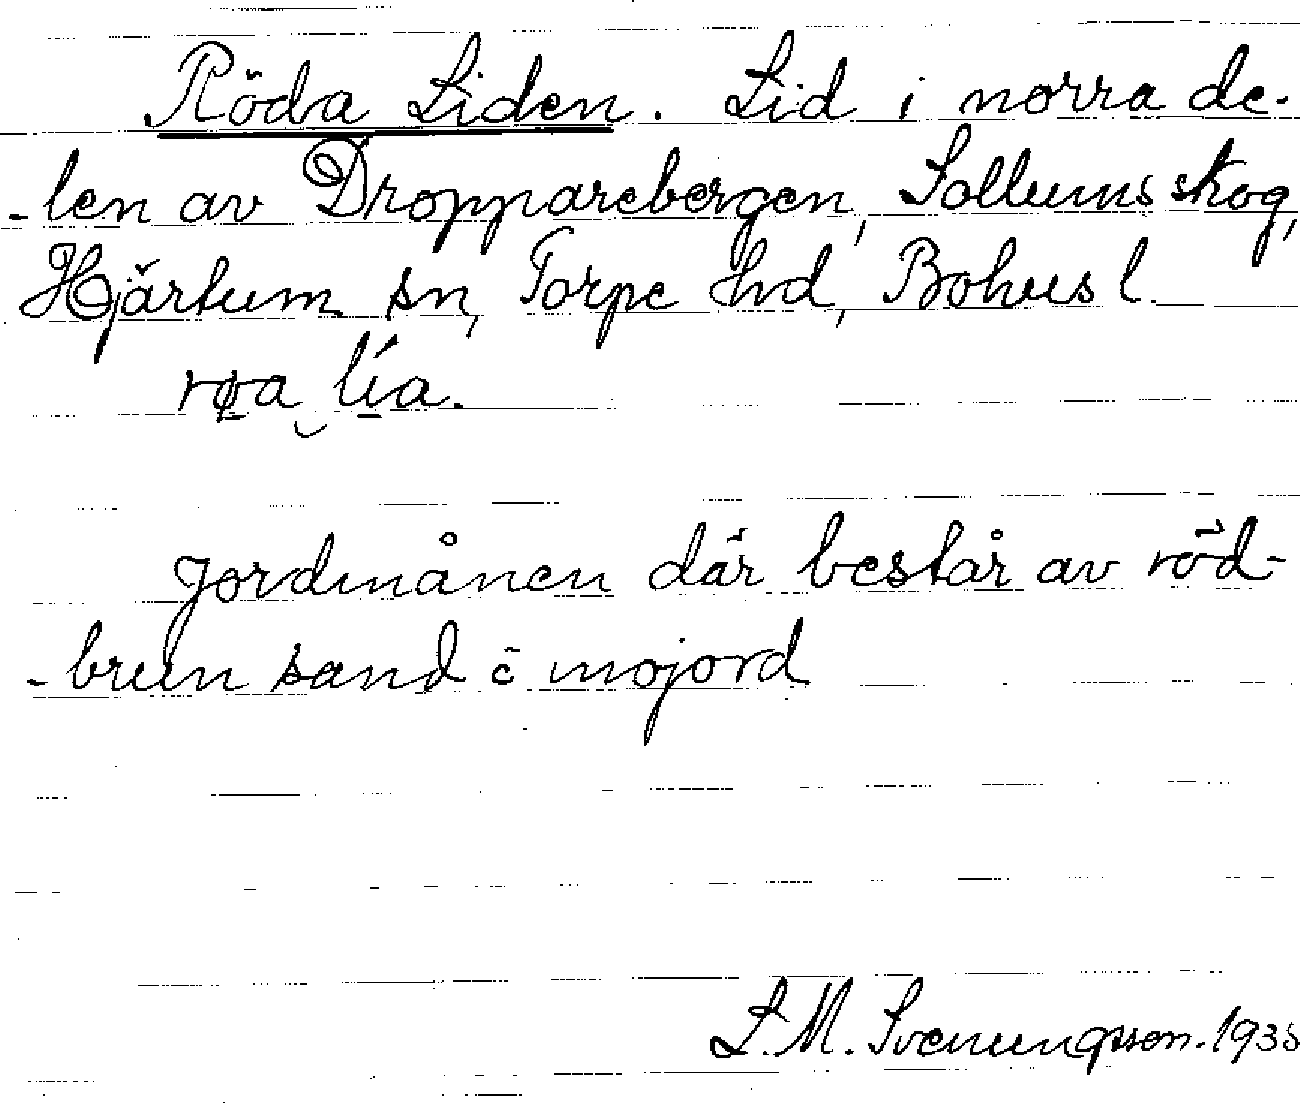 Röda Liden. Lid i norra de-
-len av Dropparebergen, Sollumsskog,
Hjärtum sn, Torpe hd, Bohusl.
røa lía.
Jordmånen där består av röd-
-brun sand o mojord
L.M. Svenungsson. 1935